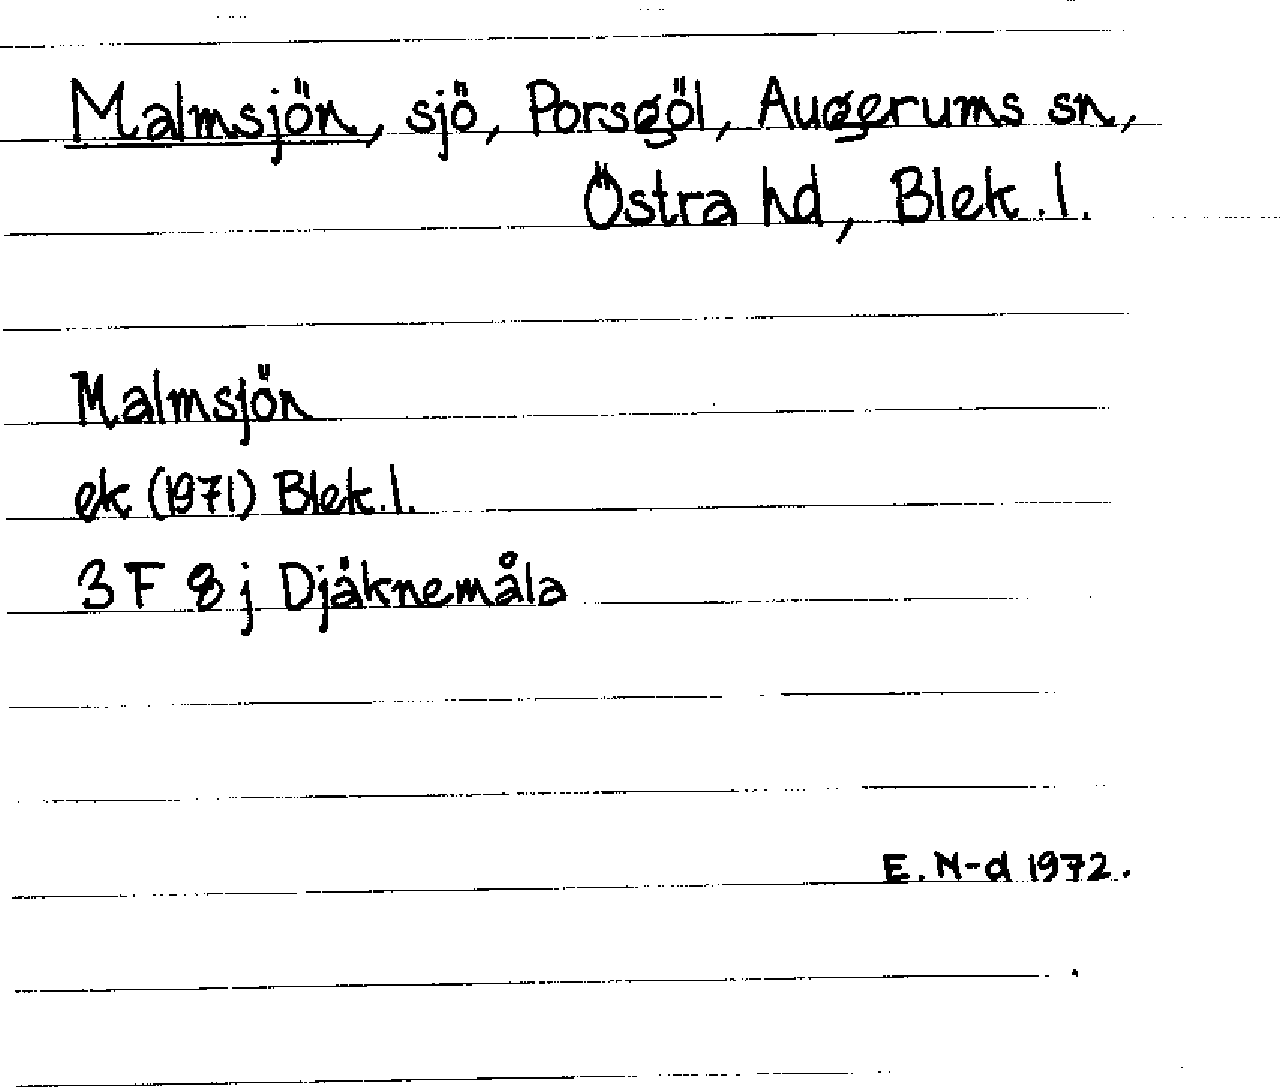 Malmsjön, sjö, Porsgöl, Augerums sn,
Östra hd, Blek.l.
Malmsjön
ek (1971) Blek.l.
3 F 8 j Djäknemåla
E. N-d 1972.